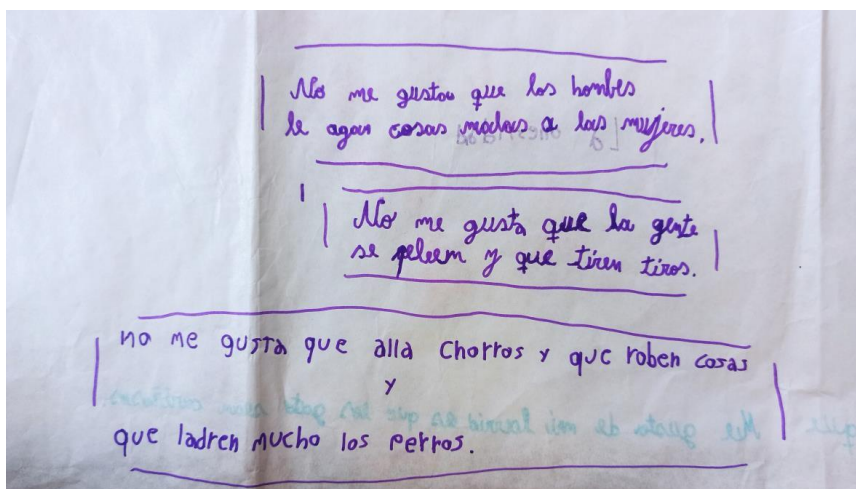 No me gusta que los hombes
le agan cosas malas a las mujeres.
No me gusta que la gente
se peleem y que tiren tiros.
no me gusta que alla chorros y que roben cosas
y
que ladren mucho los perros.